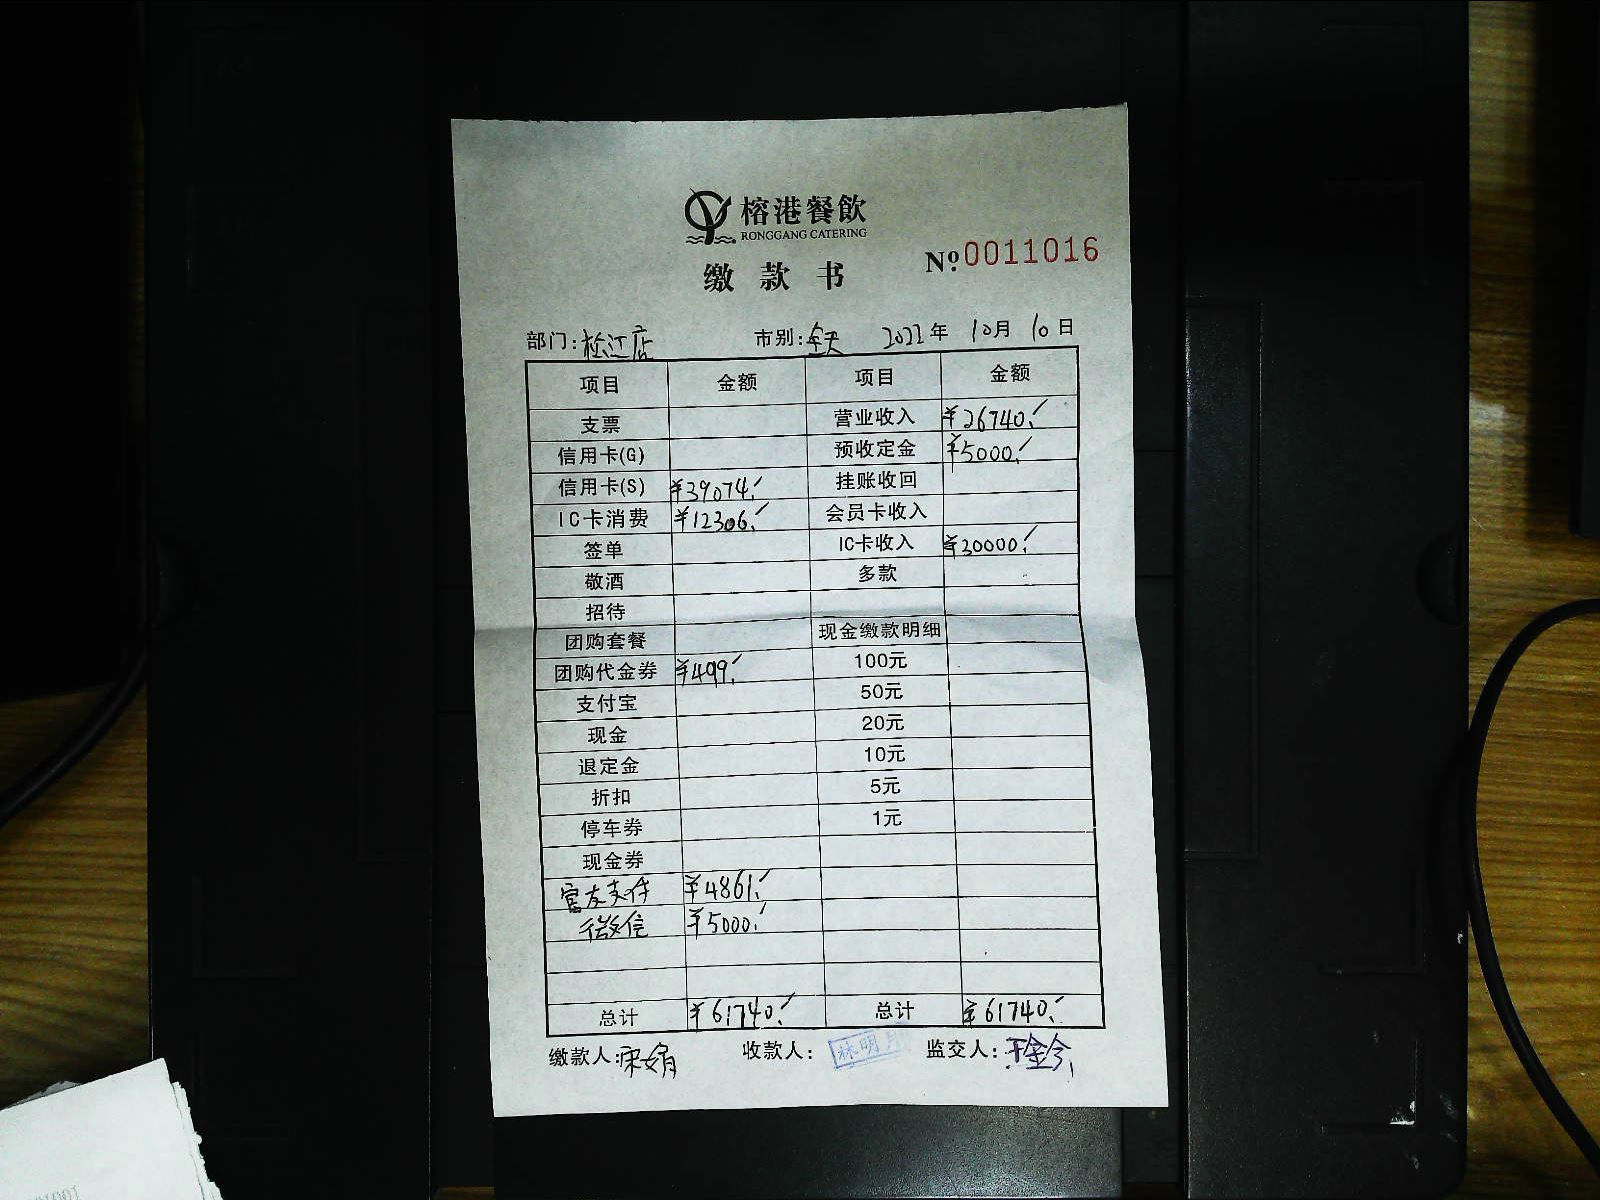 榕港餐飲
RONGGANG CATERING
缴款书
Nº 0011016
部门: 松江店 市别: 全天 2022年 10月 10日
项目 金额 项目 金额
支票 营业收入 ¥26740.
信用卡(G) 预收定金 ¥5000.
信用卡(S) ¥39074. 挂账收回
IC卡消费 ¥12306. 会员卡收入
签单 IC卡收入 ¥30000.
敬酒 多款
招待
团购套餐 现金缴款明细
团购代金券 ¥499. 100元
支付宝 50元
现金 20元
退定金 10元
折扣 5元
停车券 1元
现金券
支付 ¥4861.
微信 ¥5000.
总计 ¥61740. 总计 ¥61740.
缴款人: 宋娟 收款人: 林明 监交人: